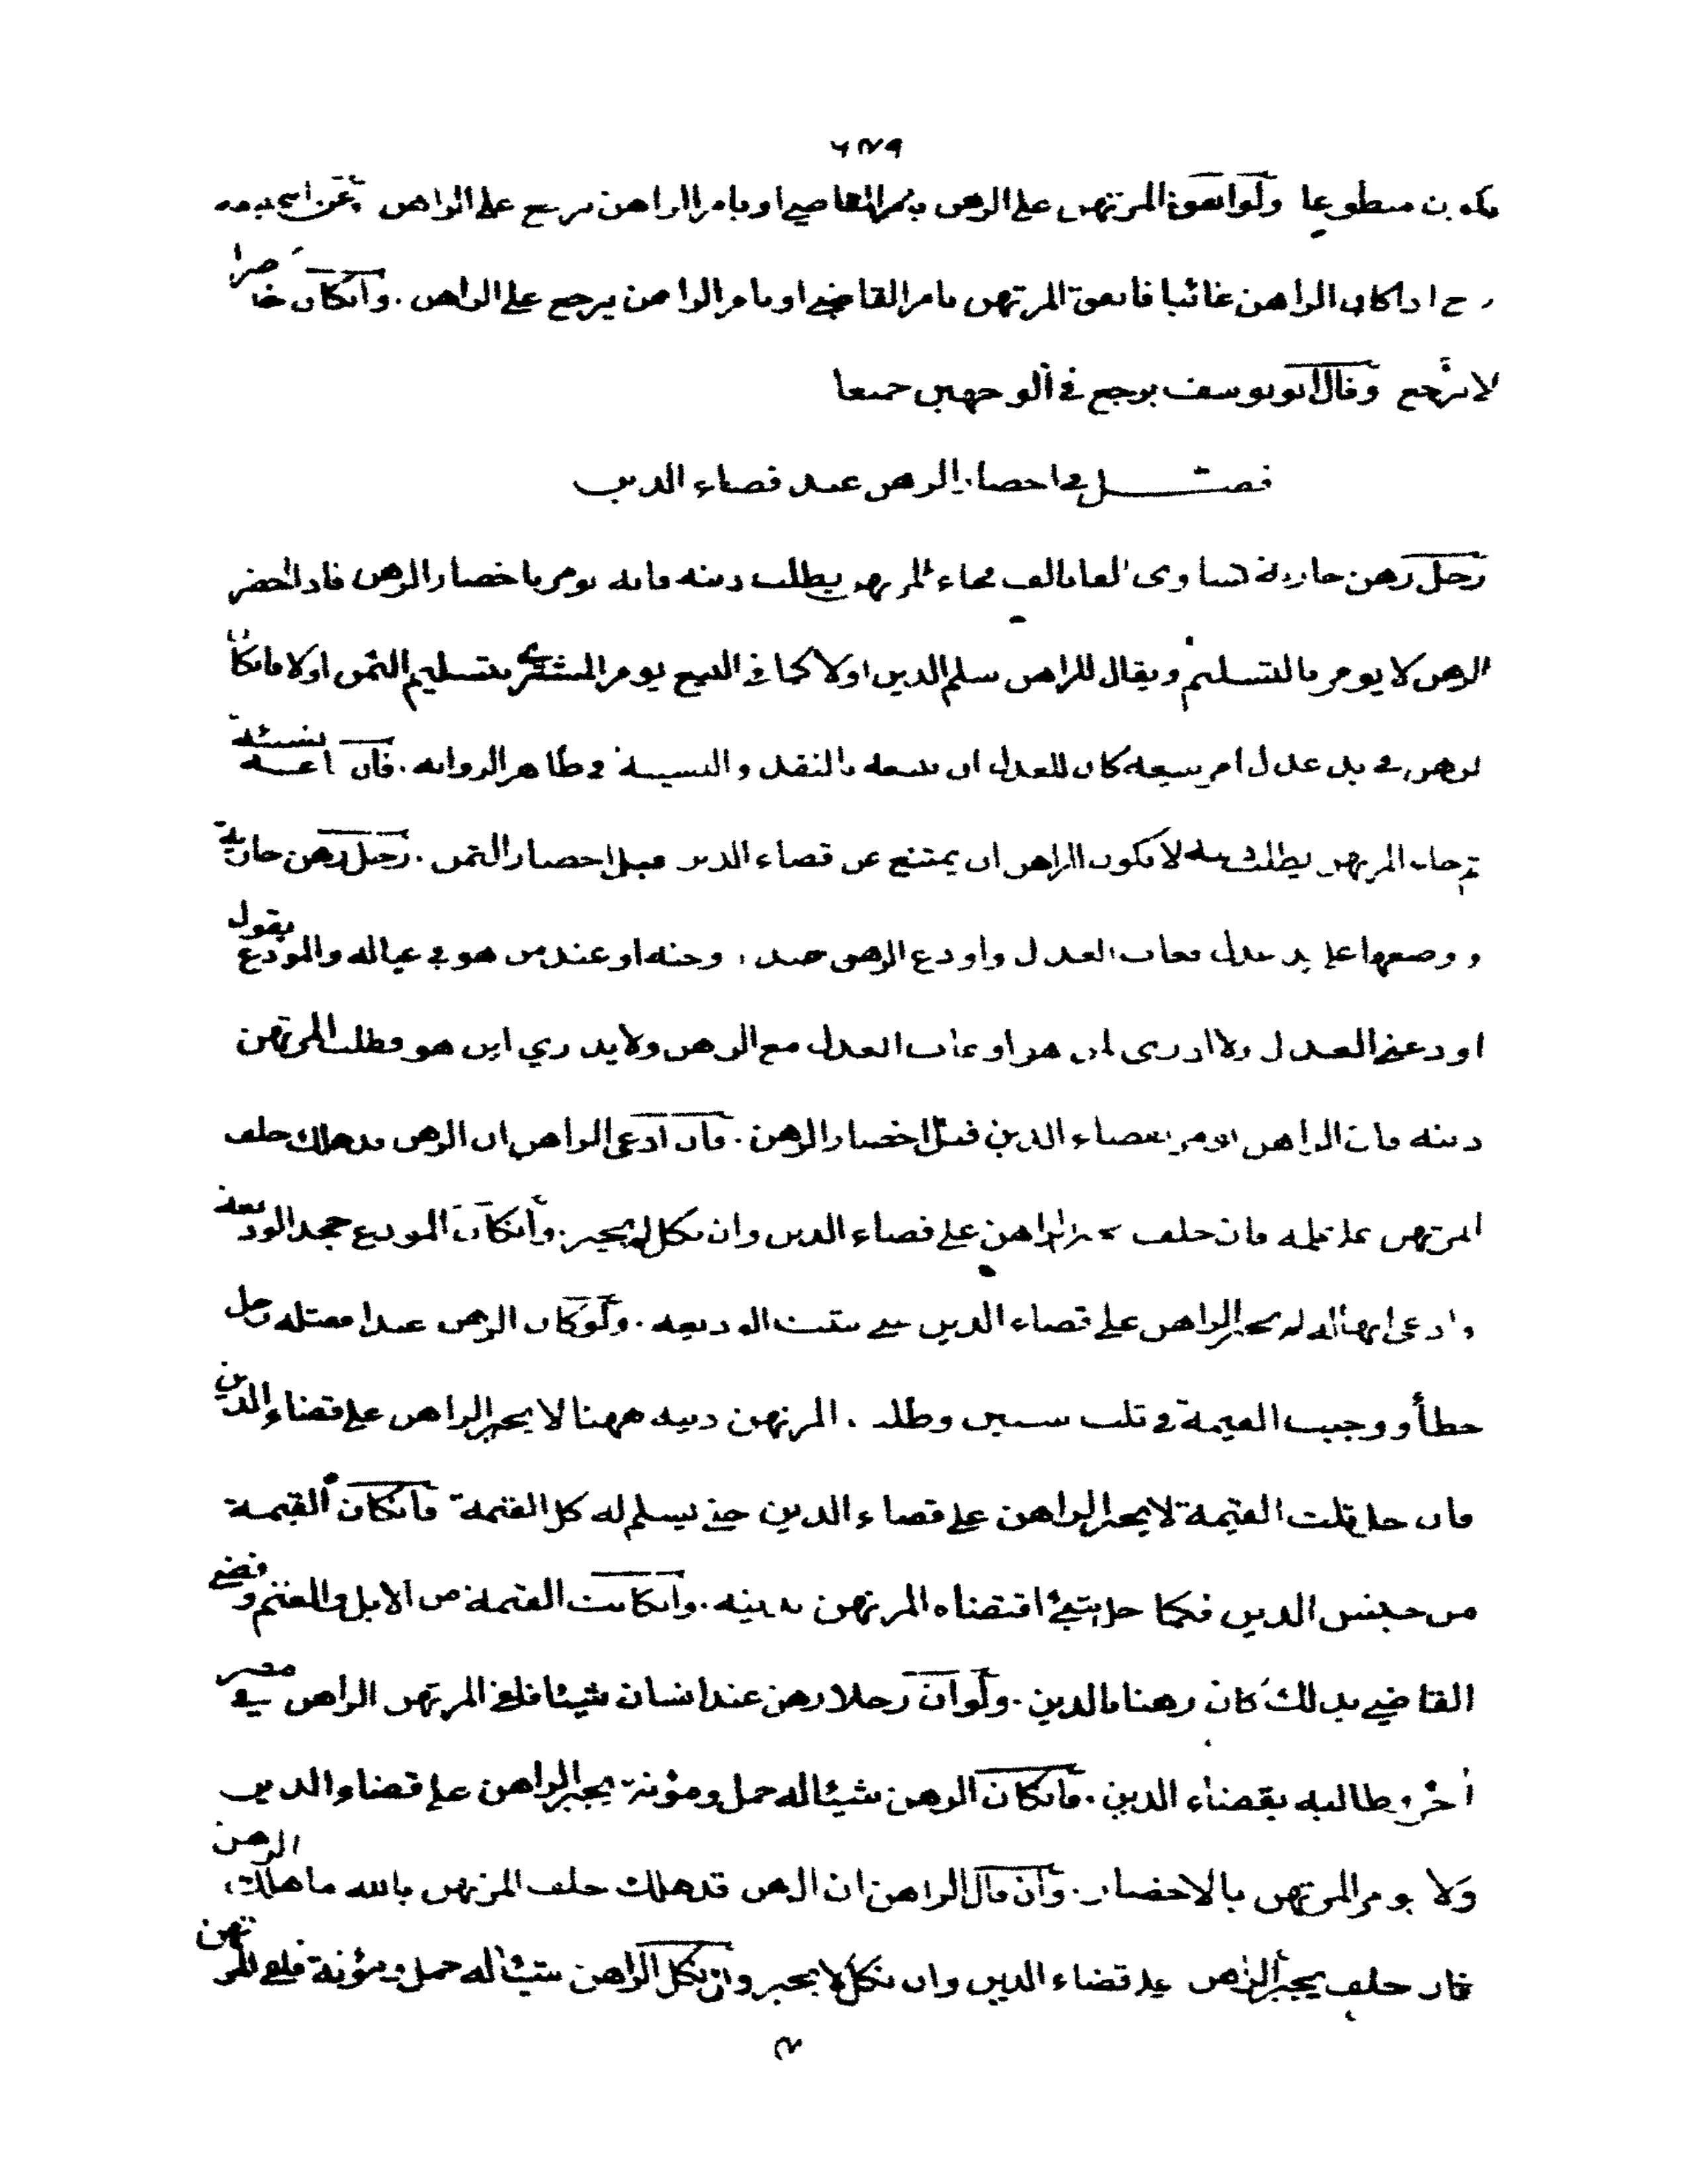 يكون متطوعا ولو انفق المرتهن على الرهن بامر القاضي او بامر الراهن يرجع على الراهن وعن ابي حنيفة
رح اذا كان الراهن غائبا فانفق المرتهن بامر القاضي او بامر الراهن يرجع على الراهن. وان كان حاضرا
لا يرجع وقال ابو يوسف يرجع في الوجهين جميعا
فصل في احضار الرهن عند قضاء الدين
رجل رهن جارية تساوي الفا بالف فجاء المرتهن يطلب دينه فانه يومر باحضار الرهن فاذا احضر
الرهن لا يومر بالتسليم ويقال للراهن سلم الدين اولا كما في البيع يومر المشتري بتسليم الثمن اولا فان كان
الرهن في يد عدل امر ببيعه كان للعدل ان يبيعه بالنقد والنسيئة في ظاهر الرواية. فان باعه نسيئة
ثم جاء المرتهن يطلب دينه لا يكون للراهن ان يمتنع عن قضاء الدين قبل احضار الثمن. رجل رهن جارية
ووضعها على يد عدل فغاب العدل واودع الرهن عند زوجته او عند من هو في عياله والمودع يقول
اودعني العدل ولا ادري لمن هو او غاب العدل مع الرهن ولا يدري اين هو فطلب المرتهن
دينه فان الراهن يومر بقضاء الدين قبل احضار الرهن. فان ادعى الراهن ان الرهن قد هلك حلف
المرتهن على علمه فان حلف يجبر الراهن على قضاء الدين وان نكل لم يجبر. وان كان المودع جحد الوديعة
وادعى انها له لم يجبر الراهن على قضاء الدين حتى يثبت الوديعة. ولو كان الرهن عبدا فقتله رجل
خطأ ووجب القيمة في ثلث سنين وطلب المرتهن دينه ههنا لا يجبر الراهن على قضاء الدين
فان حل ثلث القيمة لا يجبر الراهن على قضاء الدين حتى يسلم له كل القيمة فان كان القيمة
من جنس الدين فكما حل شيء اقتضاه المرتهن بدينه. وان كانت القيمة من الابل والغنم وقضى
القاضي بذلك كان رهنا بالدين. ولو ان رجلا رهن عند انسان شيئا فلقي المرتهن الراهن في مصر
اخر وطالبه بقضاء الدين. فان كان الرهن شيئا له حمل ومؤنة يجبر الراهن على قضاء الدين
ولا يومر المرتهن بالاحضار. وان قال الراهن ان الرهن قد هلك حلف المرتهن بالله ما هلك الرهن
فان حلف يجبر الراهن على قضاء الدين وان نكل لا يجبر وان نكل الراهن شيئا له حمل ومؤنة فلقي المرتهن